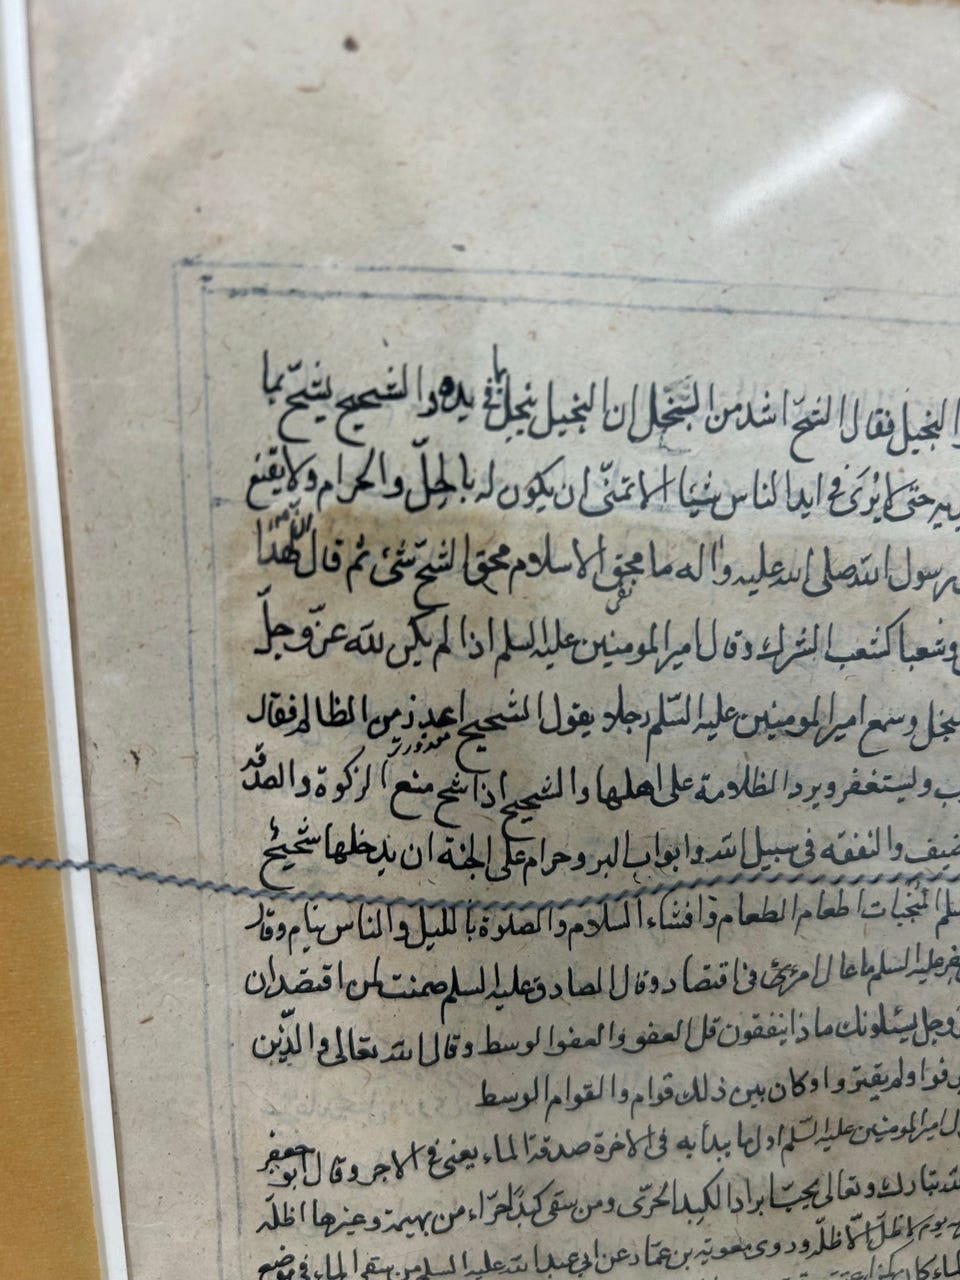 البخيل فقال الشح اشد من البخل ان البخيل يبخل بما في يده والشحيح يشح بما
حتى لا يرى في ايدي الناس شيئا الا تمنى ان يكون له بالحل والحرام ولا يقنع
رسول الله صلى الله عليه واله ما محق الاسلام محق الشح شئ ثم قال ان لهذا
وشعبا كشعب الشرك وقال امير المومنين عليه السلم اذا لم يكن لله عز وجل
وسمع امير المومنين عليه السلم رجلا يقول الشحيح اعذر من الظالم فقال
وليستغفر ويرد الظلامة على اهلها والشحيح اذا شح منع الزكوة والصدقه
والنفقه في سبيل الله وابواب البر وحرام على الجنة ان يدخلها شحيح
المنجيات اطعام الطعام وافشاء السلام والصلوة بالليل والناس نيام وقال
عليه السلم ما عال امرئ في اقتصاد وقال الصادق عليه السلم ضمنت لمن اقتصد ان
وجل يسئلونك ماذا ينفقون قل العفو والعفو الوسط وقال الله تعالى والذين
ولم يقتروا وكان بين ذلك قوام والقوام الوسط
امير المومنين عليه السلم اول ما يبدأ به في الاخرة صدقة الماء يعني في الاجر وقال ابو جعفر
تبارك وتعالى يحب ابراد الكبد الحرى ومن سقى كبدا حراء من بهيمة وغيرها اظله
يوم لا ظل الا ظله وروى معوية بن عمار عن ابي عبد الله عليه السلم من سقى الماء في موضع